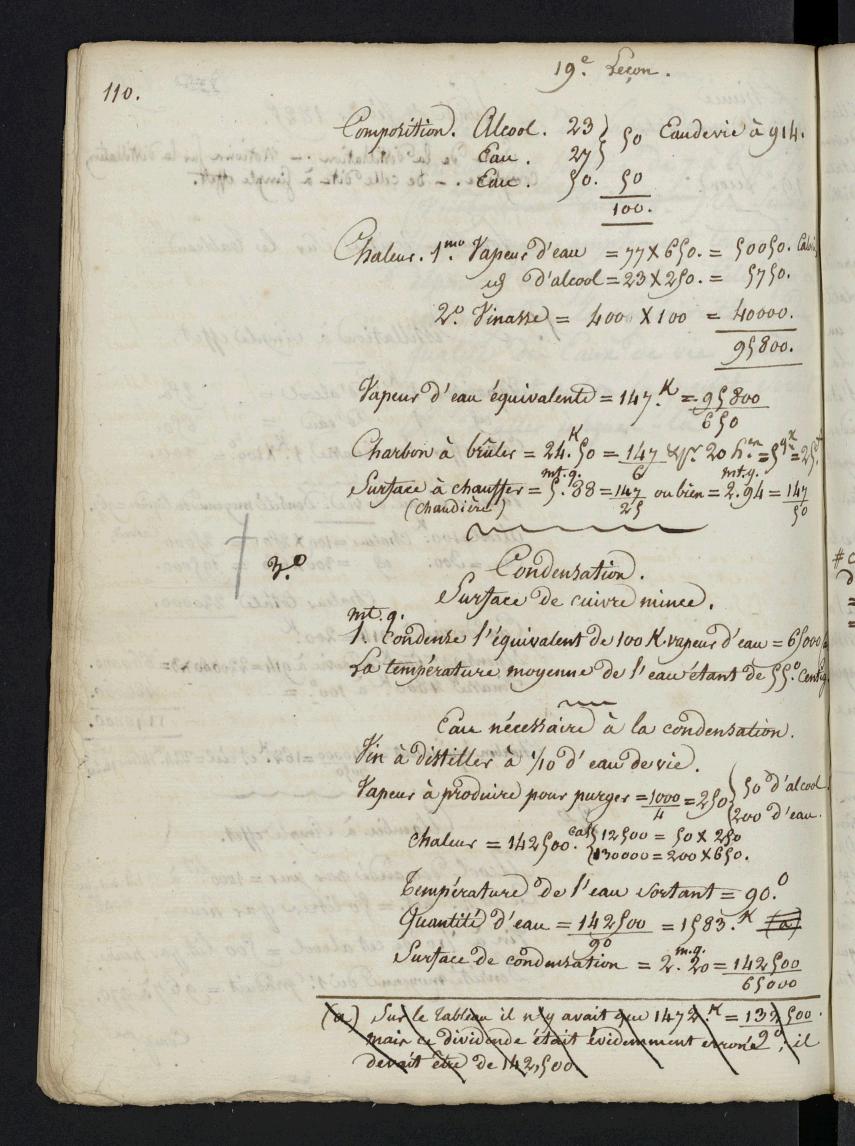 19.e Leçon.
110.
Composition. Alcool. 23 } 50 Eau de vie à 914.
Eau. 27
Eau. 50. 50
100.
Chaleur. 1.mo Vapeur d'eau = 77 X 650. = 50050.
id d'alcool = 23 X 250. = 5750.
2.o Vinasse = 400 X 100 = 40000.
95800.
Vapeur d'eau équivalente = 147.K = 95800/650
Charbon à brûler = 24.K 50 = 147/6 & pr 20 h.
Surface à chauffer = 5.mt.q. 88 = 147/25 ou bien = 2.mt.q. 94 = 147/50
(chaudière)
3.o Condensation.
Surface de cuivre mince.
1.mt.q. condense l'équivalent de 100 K. vapeur d'eau = 65000
La température moyenne de l'eau étant de 55.o Centig
Eau nécessaire à la condensation.
Vin à distiller à 1/10 d'eau de vie.
Vapeur à produire pour purger = 1000/4 = 250 { 50 d'alcool.
200 d'eau.
chaleur = 142500.cal { 12500 = 50 X 250
130000 = 200 X 650.
Température de l'eau sortant = 90.o
Quantité d'eau = 142500/90 = 1583.K (a)
Surface de condensation = 2.m.q. 20 = 142500/65000
(a) Sur le tableau il n'y avait que 1472.K = 132500/90.
mais ce dividende était évidemment erroné, il
devait être de 142,500.